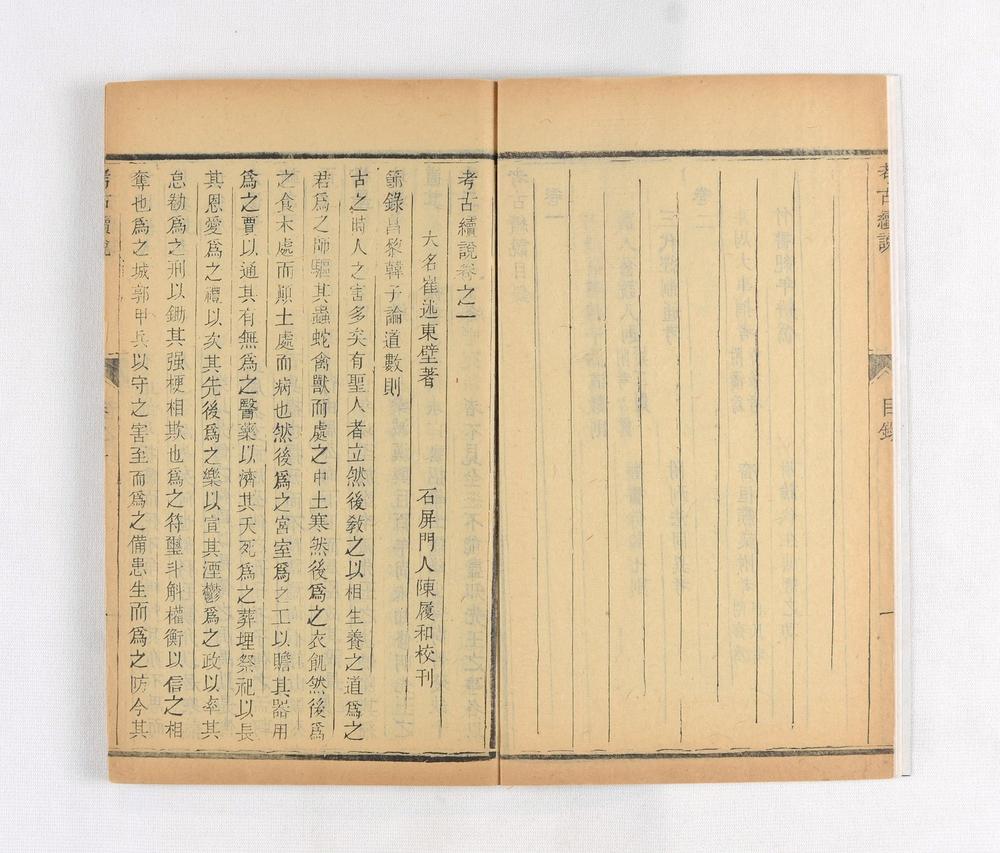 考古續說
目錄
一
考古續說卷之一
大名崔述東壁著 石屏門人陳履和校刊
節錄昌黎韓子論道數則
古之時人之害多矣有聖人者立然後敎之以相生養之道爲之
君爲之師驅其蟲蛇禽獸而處之中土寒然後爲之衣飢然後爲
之食木處而顚土處而病也然後爲之宮室爲之工以贍其器用
爲之賈以通其有無爲之醫藥以濟其夭死爲之葬埋祭祀以長
其恩愛爲之禮以次其先後爲之樂以宣其湮鬱爲之政以率其
怠勌爲之刑以鋤其强梗相欺也爲之符璽斗斛權衡以信之相
奪也爲之城郭甲兵以守之害至而爲之備患生而爲之防今其
考古續說